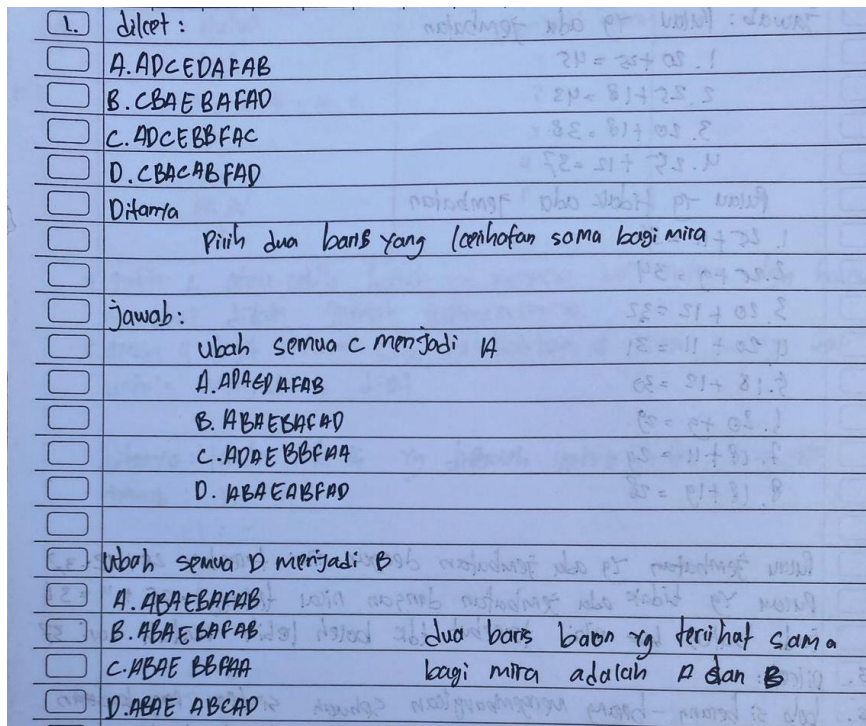 1. diket :
A. ADCEDAFAB
B. CBAEBAFAD
C. ADCEBBFAC
D. CBACABFAD
Ditanya
Pilih dua baris yang kelihatan sama bagi mira
jawab:
Ubah semua C menjadi A
A. ADAEDAFAB
B. ABAEBAFAD
C. ADAEBBFAA
D. ABAEABFAD
Ubah semua D menjadi B
A. ABAEBAFAB
B. ABAEBAFAB dua baris balon yg terlihat sama
C. ABAE BBFAA bagi mira adalah A dan B
D. ABAE ABCAD